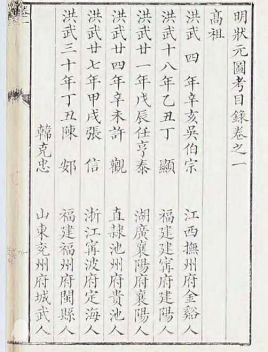 明狀元圖考目錄卷之一
高祖
洪武 四 年辛亥吳伯宗 江西撫州府金谿人
洪武十八年乙丑丁 顯 福建建寧府建陽人
洪武廿一年戊辰任亨泰 湖廣襄陽府襄陽人
洪武廿四年辛未許 觀 直隷池州府貴池人
洪武廿七年甲戌張 信 浙江寧波府定海人
洪武三十年丁丑陳 福建福州府閩縣人
韓克忠 山東兗州府城武人